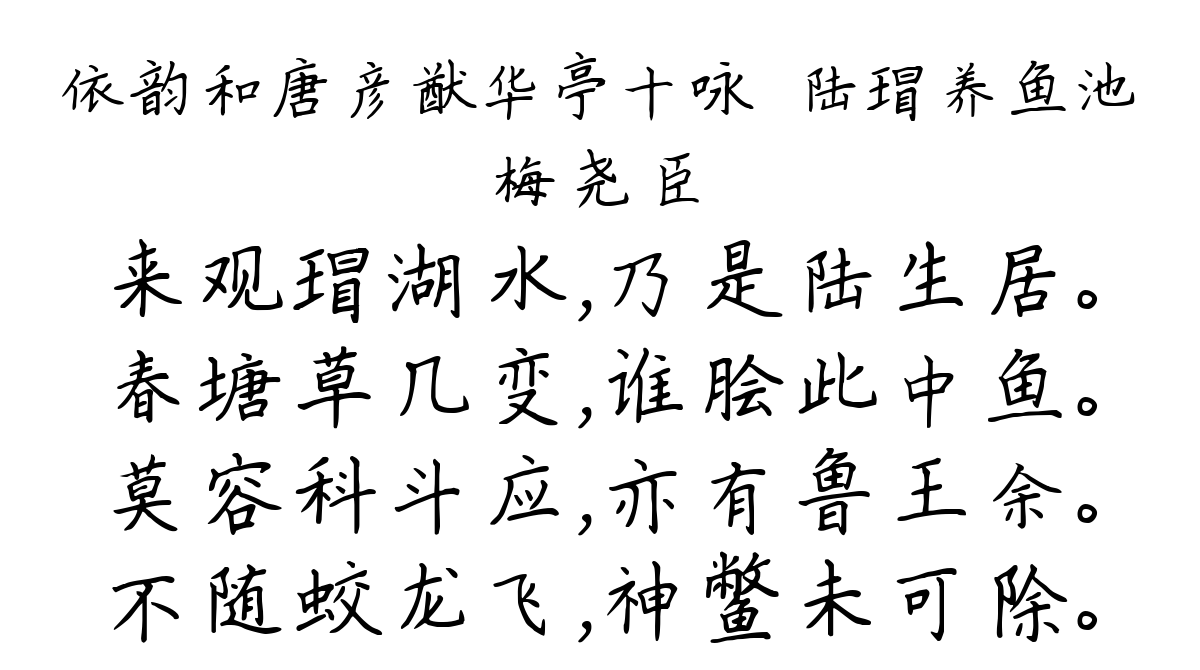 依韵和唐彦猷华亭十咏 陆瑁养鱼池
梅尧臣
来观瑁湖水,乃是陆生居。
春塘草几变,谁脍此中鱼。
莫容科斗应,亦有鲁王余。
不随蛟龙飞,神鳖未可除。